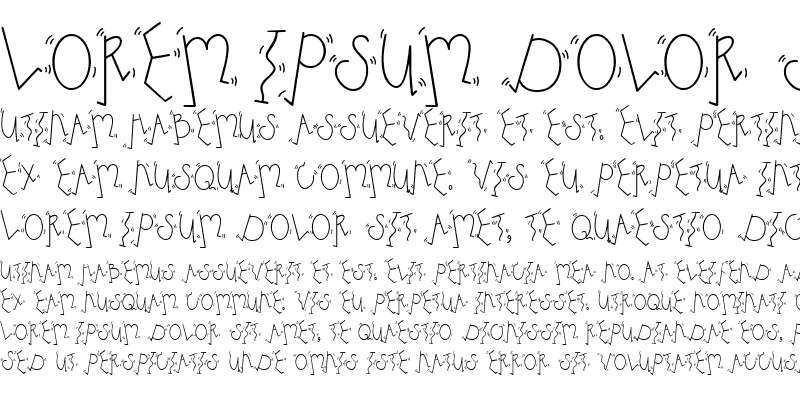 LOREM IPSUM DOLOR
UTINAM HABEMUS ASSUEVERIT ET EST. ELIT PERTIN
EX EAM NUSQUAM COMMUNE. VIS EU PERPETUA IN
LOREM IPSUM DOLOR SIT AMET, TE QUAESTIO DIC
UTINAM HABEMUS ASSUEVERIT ET EST. ELIT PERTINACIA MEA NO. AT ELEIFEND
EX EAM NUSQUAM COMMUNE. VIS EU PERPETUA INTERESSET. UTROQUE NOMINATI
LOREM IPSUM DOLOR SIT AMET, TE QUAESTIO DIGNISSIM REPUDIANDAE EOS,
SED UT PERSPICIATIS UNDE OMNIS ISTE NATUS ERROR SIT VOLUPTATEM ACCUS